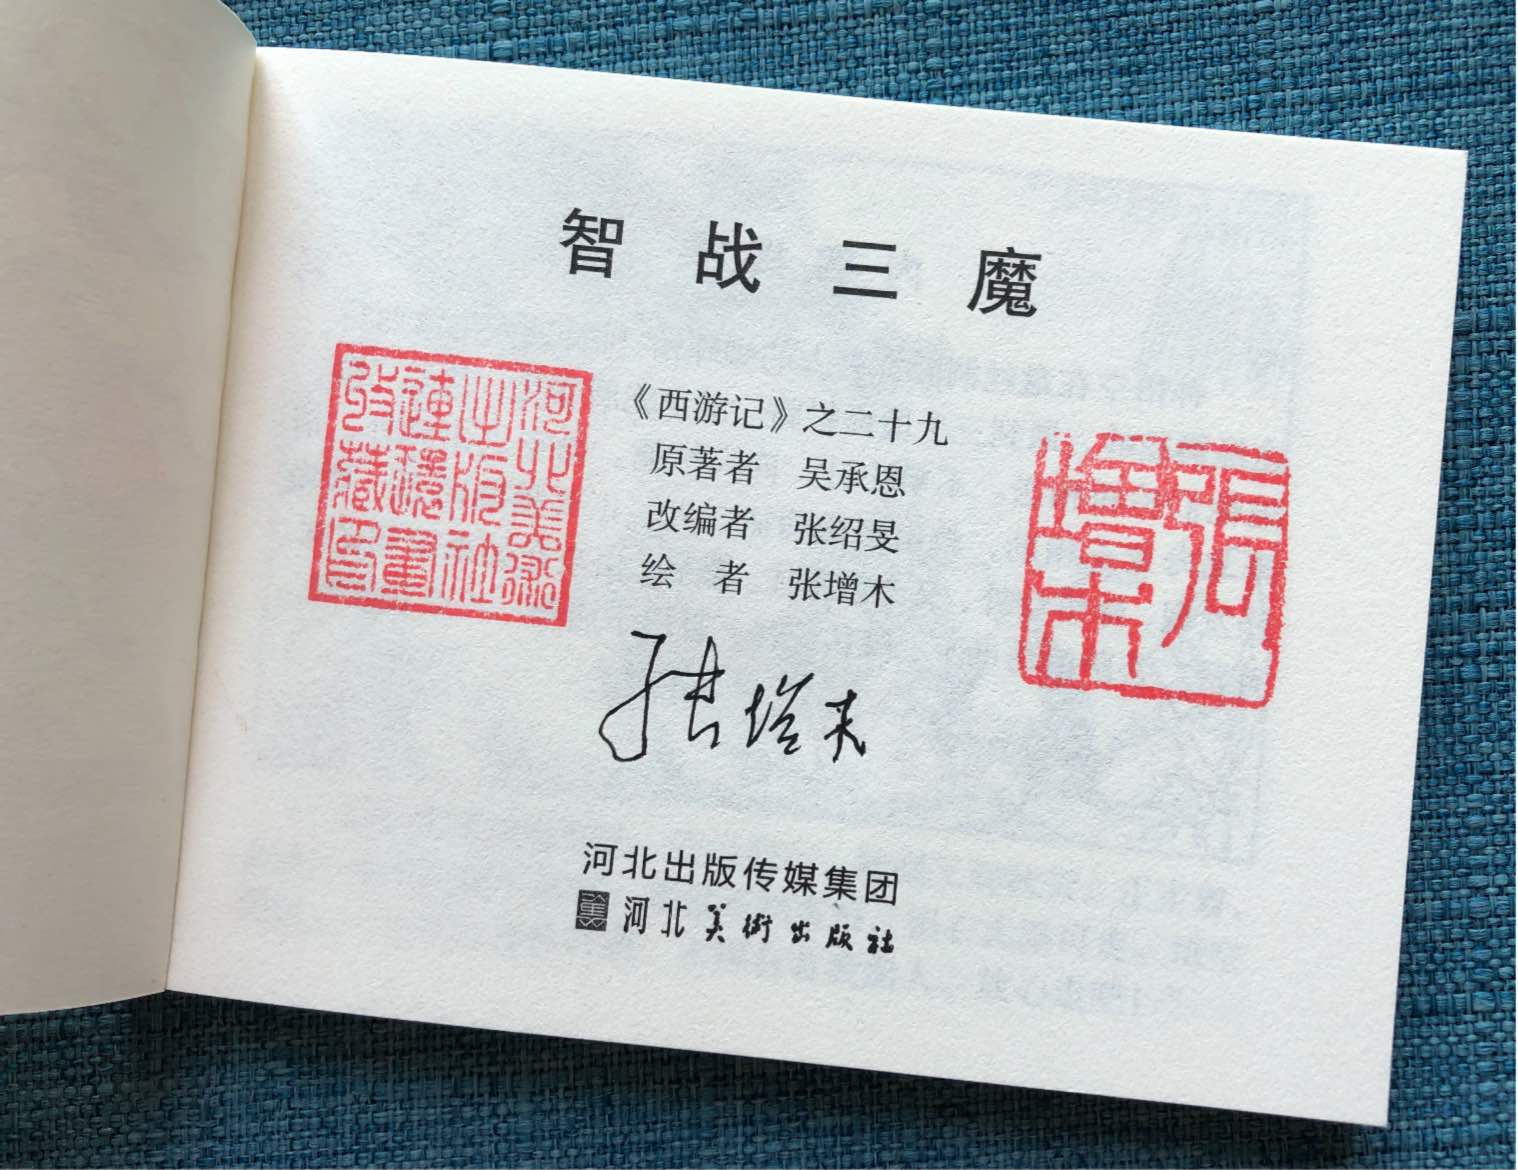 智战三魔
河北美术出版社连环画收藏印
《西游记》之二十九
原著者 吴承恩
改编者 张绍旻
绘 者 张增木
張增木
张增木
河北出版传媒集团
河北美術出版社